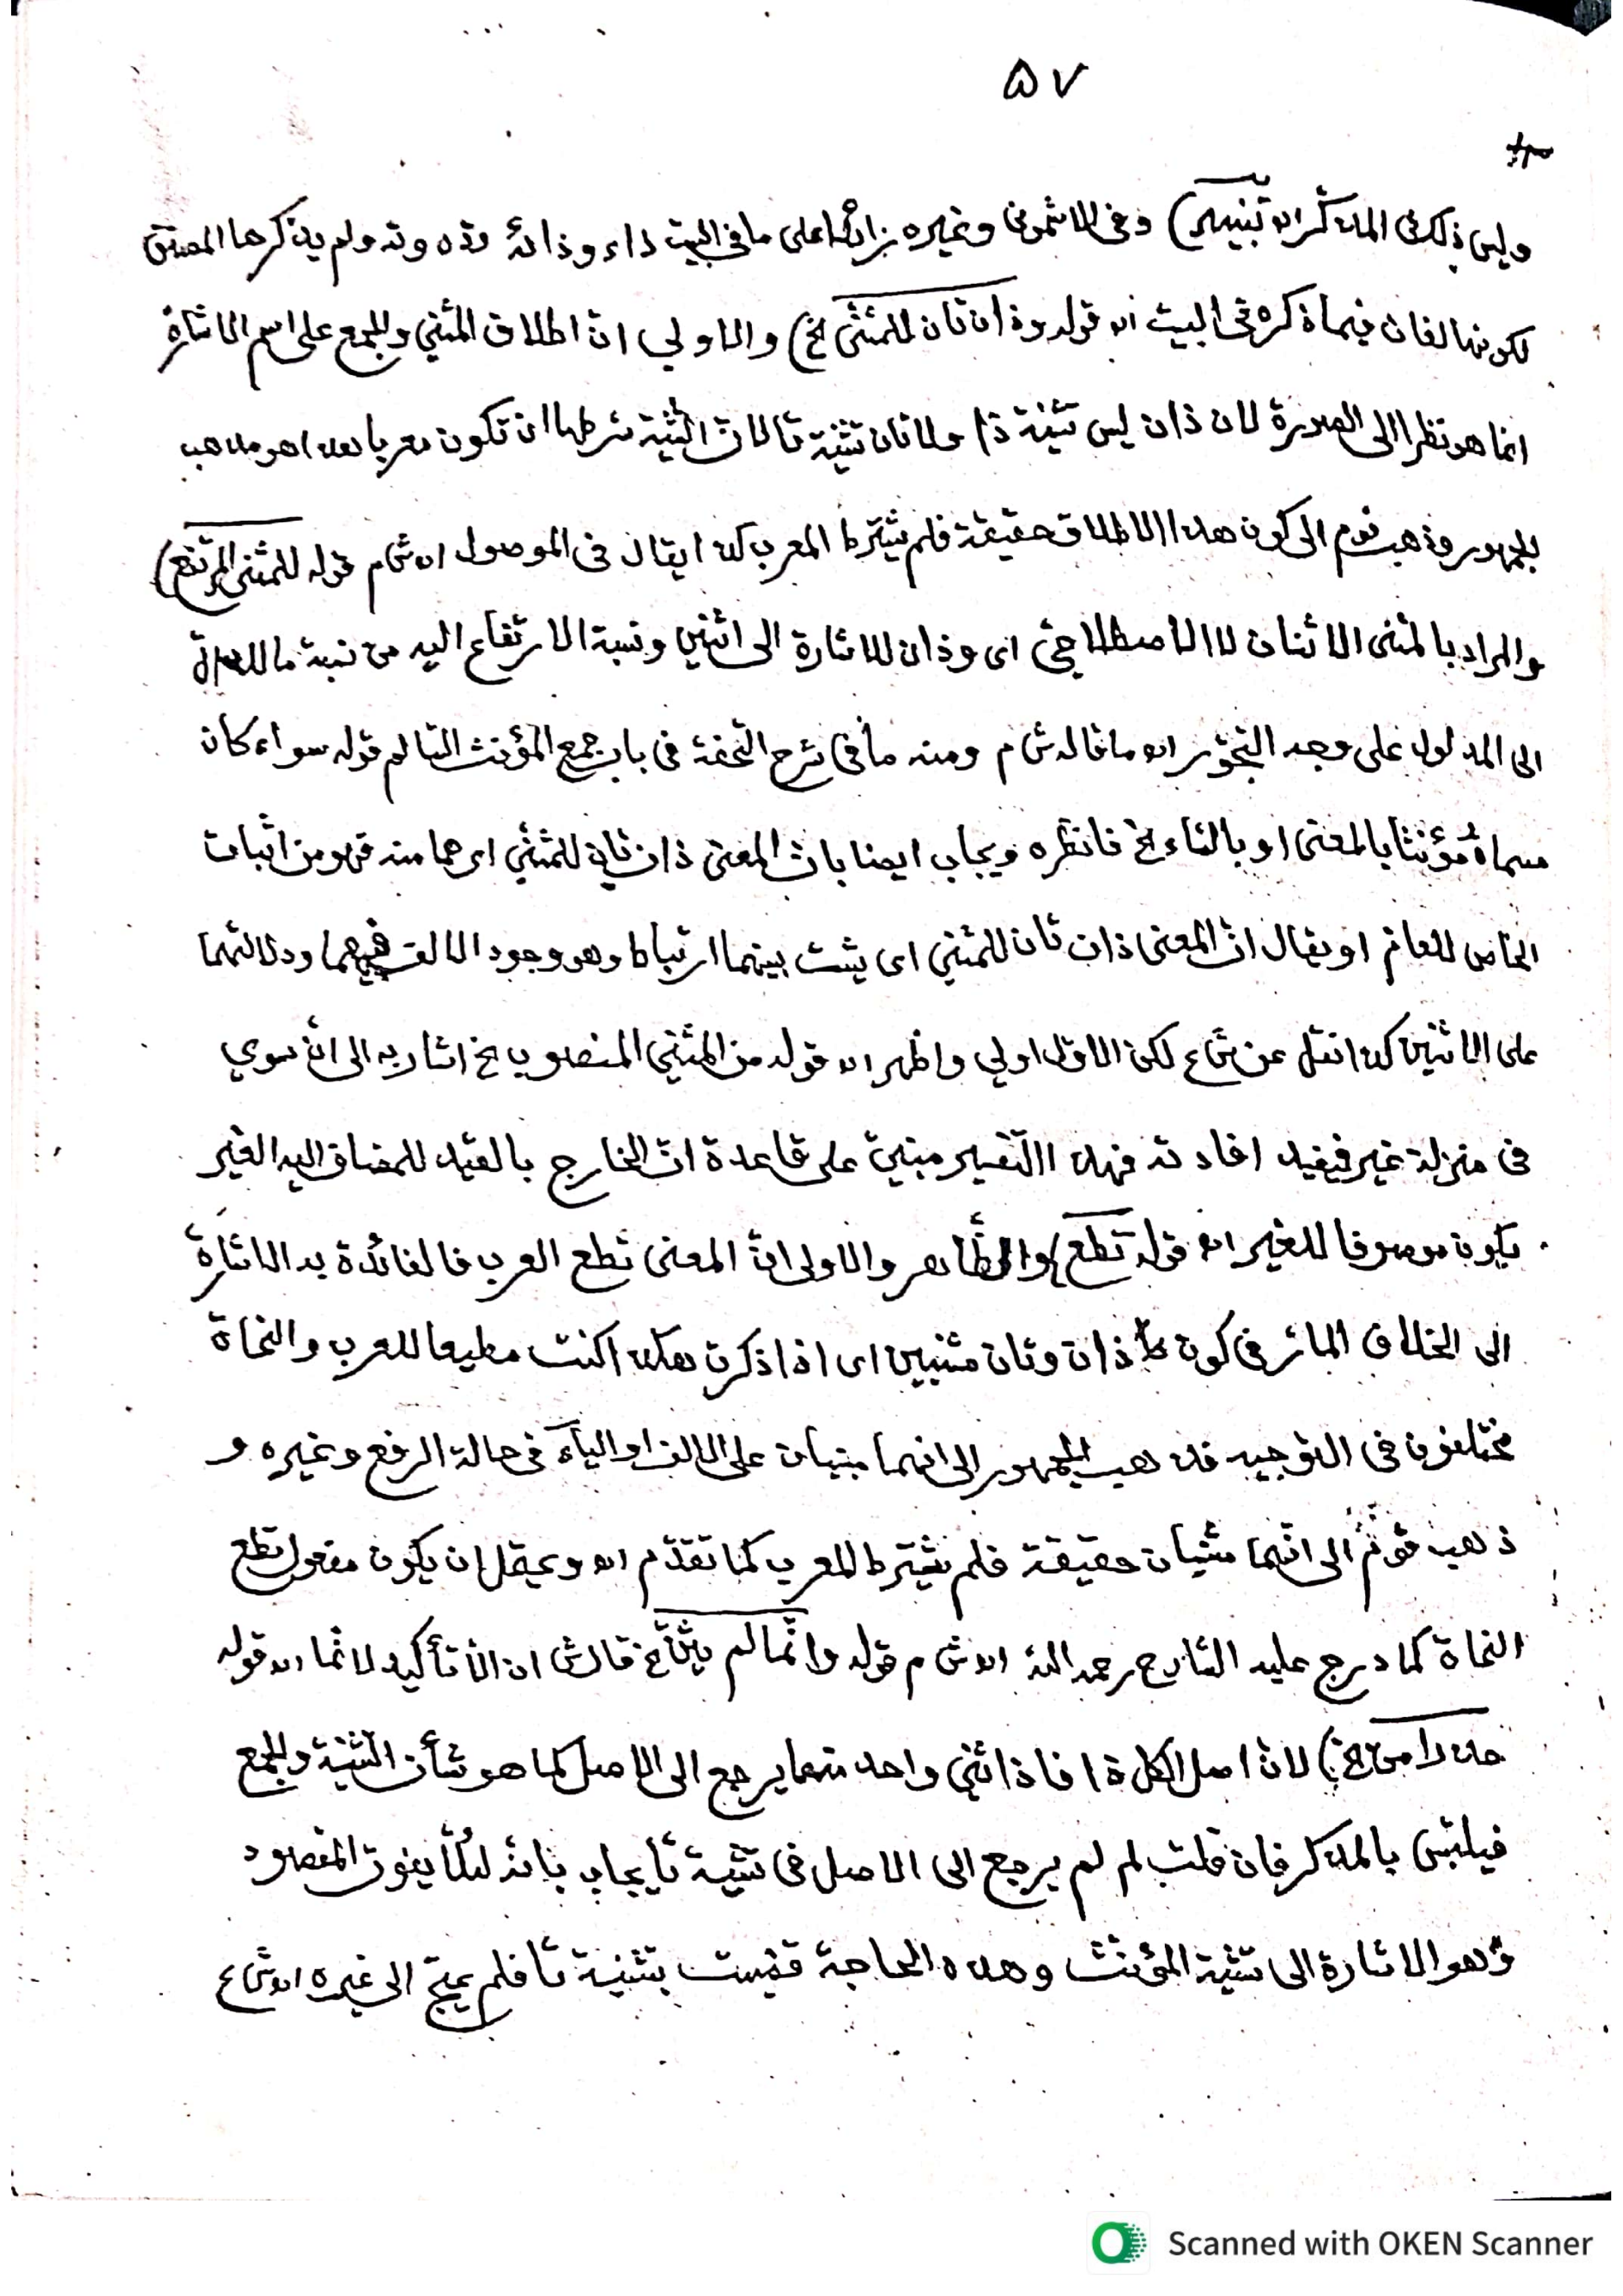 ٥٧
وليس ذلك فى المذكر اه تنبيه) وفى الاشمونى وغيره بزائد اعلى ما فى البيت ذاء وذائه وذه وته ولم يذكرها المصنف
لكونها لغات فيما ذكره فى البيت اه قوله وذان تان للمثنى الخ) والاولى انّ اطلاق المثنى والجمع على اسم الاشارة
انما هو نظرا الى الصورة لان ذان ليس تثنية ذا ولا تان تثنية تا لانّ التثنية شرطها ان تكون معربا هذا هو مذهب
الجمهور وذهب قوم الى كون هذا الاطلاق حقيقة فلم يشترط المعرب كذا يقال فى الموصول اه ش م قوله للمثنى المرتفع)
والمراد بالمثنى الاثنان لا الاصطلاحىّ اى وذان للاشارة الى اثنين ونسبة الارتفاع اليه من نسبة ما للدالّ
الى المدلول على وجه التجوّز اه ما قاله ش م ومنه ما فى شرح التحفة فى باب جمع المؤنث السالم قوله سواء كان
مسماه مؤنثا بالمعنى او بالتاء الخ فانظره ويجاب ايضا بانّ المعنى ذان تان للمثنّى اى هما منه فهو من اثبات
الخاص للعامّ او يقال انّ المعنى ذان تان للمثنى اى يثبت بينهما ارتباط وهو وجود الالف فيهما ودلالتهما
على الاثنين كذا نقل عن ش ع لكن الاوّل اولى واظهر اه قوله من المثنى المنصوب الخ اشار به الى انّ سوى
فى منزلة غير فيفيد افادته فهذا التفسير مبنىّ على قاعدة انّ الخارج بالقيد للمضاف اليه الغير
يكون موصوفا للغير اه قوله تطع) والظّاهر والاولى انّ المعنى تطع العرب فالفائدة به الاشارة
الى الخلاف المائر فى كون ذان وتان مثنيين اى اذا ذكرت هكذا كنت مطيعا للعرب والنحاة
مختلفون فى التوجيه فذهب الجمهور الى انهما مبنيان على الالف او الياء فى حالة الرفع وغيره و
ذهب قوم الى انّهما مثنيان حقيقة فلم يشترط المعرب كما تقدّم اه ويحتمل ان يكون مفعول تطع
النحاة كما درج عليه الشارح رحمه الله اه ش م قوله وانّما لم يثنّ الخ قال ش ان الا تأكيد لا نما اه قوله
حذرا من الخ) لانّ اصل الكل ذا فاذا ثنى واحد منهما يرجع الى الاصل كما هو شأن التثنية والجمع
فيلتبس بالمذكر فان قلت لم لم يرجع الى الاصل فى تثنية تا يجاب بانه لئلّا يفوت المقصود
وهو الاشارة الى تثنية المؤنث وهذه الحاجة قضيت بتثنية تا فلم يحتج الى غيره اه ش ع
Scanned with OKEN Scanner